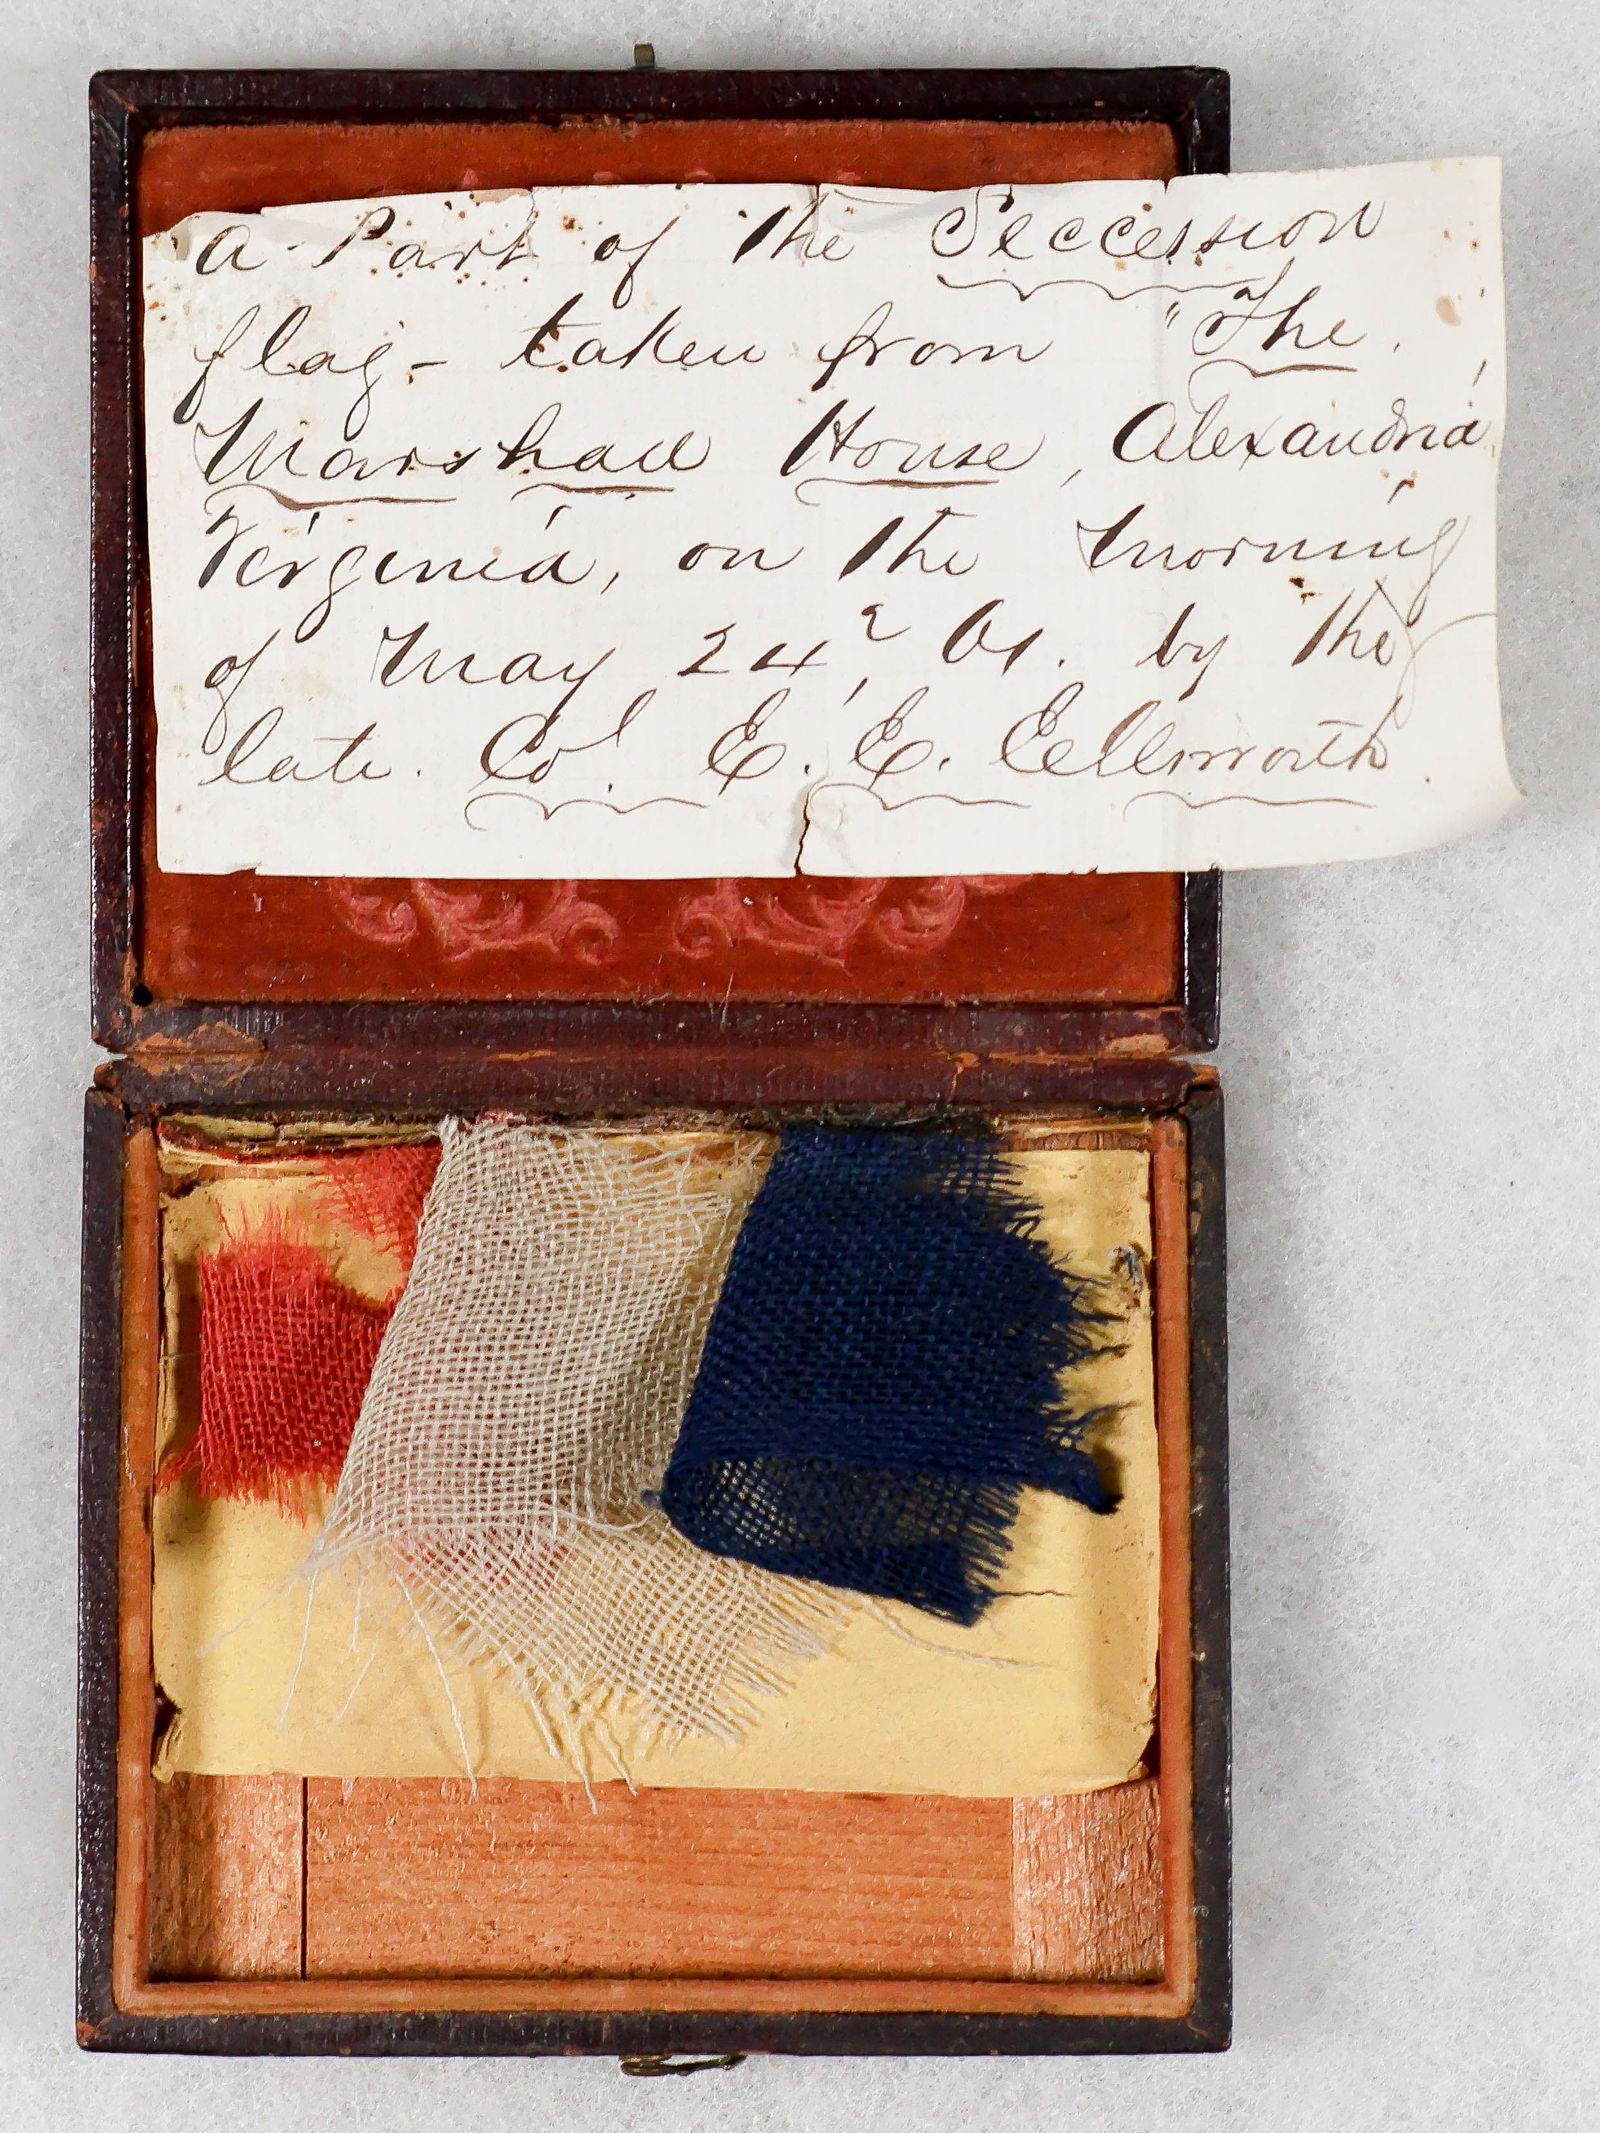 a Part of the Seccession
flag - taken from "The
Marshall House, Alexandria,
Virginia, on the morning
of May 24, 61. by the
late Col. E. E. Ellsworth.